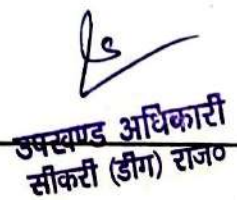 उपखण्ड अधिकारी
सीकरी (डीग) राज०